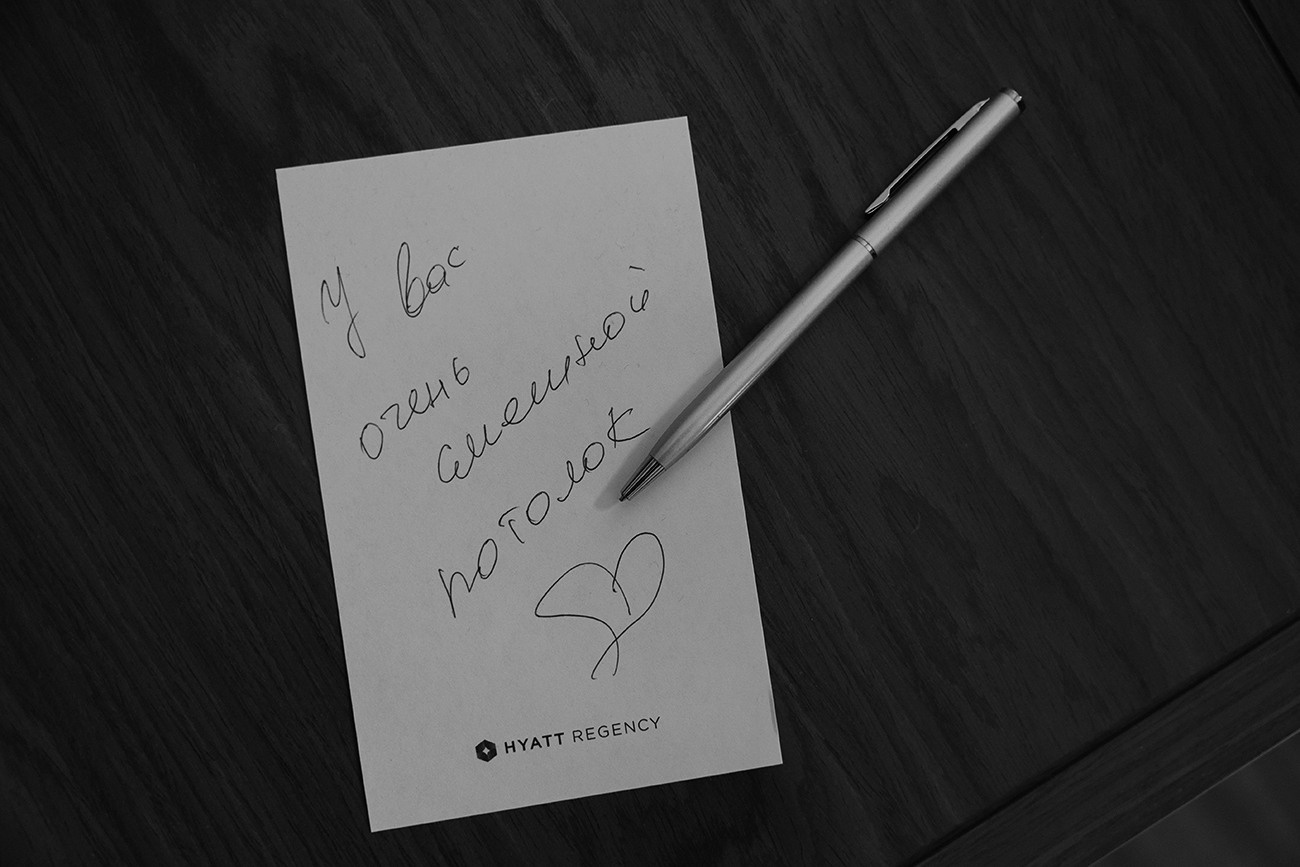 У вас
очень
смешной
потолок
HYATT REGENCY